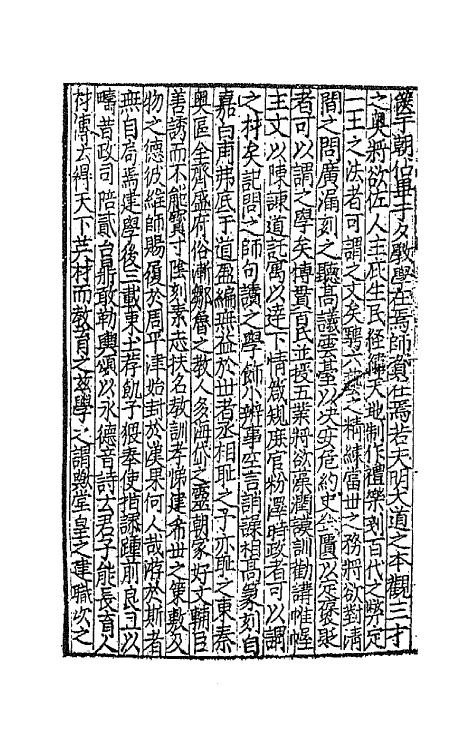 僕于朝佔畢于夕教學在焉師資在焉若夫明大道之本觀三才
之奧將欲佐人主庇生民經緯天地制作禮樂刬百代之弊定
一王之法者可謂之文矣騁六藝之精練當世之務將欲對清
間之問廣漏刻之聽高議雲臺以決安危約史金匱以定褒貶
者可以謂之學矣博貫百氏並援五業將欲藻潤謨訓勸講帷幄
主文以陳諫道託寓以達下情箴規庶官粉澤時政者可以謂
之材矣記問之師句讀之學飾小辨事空言誚諜相高篆刻自
嘉白首弗底于道盈編無益於世者丞相恥之予亦恥之東秦
奧區全齊盛府俗漸鄒魯之教人多海岱之靈朝家好文輔臣
善誘而不能寶寸陰刻素志扶名教訓孝悌建希世之策敷及
物之德彼維師賜履於周平津始封於漢果何人哉游於斯者
無自局焉建學後三載東土荐飢予猥奉使指謬踵前良且以
疇昔政司陪貳台鼎敢勒輿頌以永德音詩云君子能長育人
材傳云得天下英材而教育之茲學之謂歟堂皇之建職次之